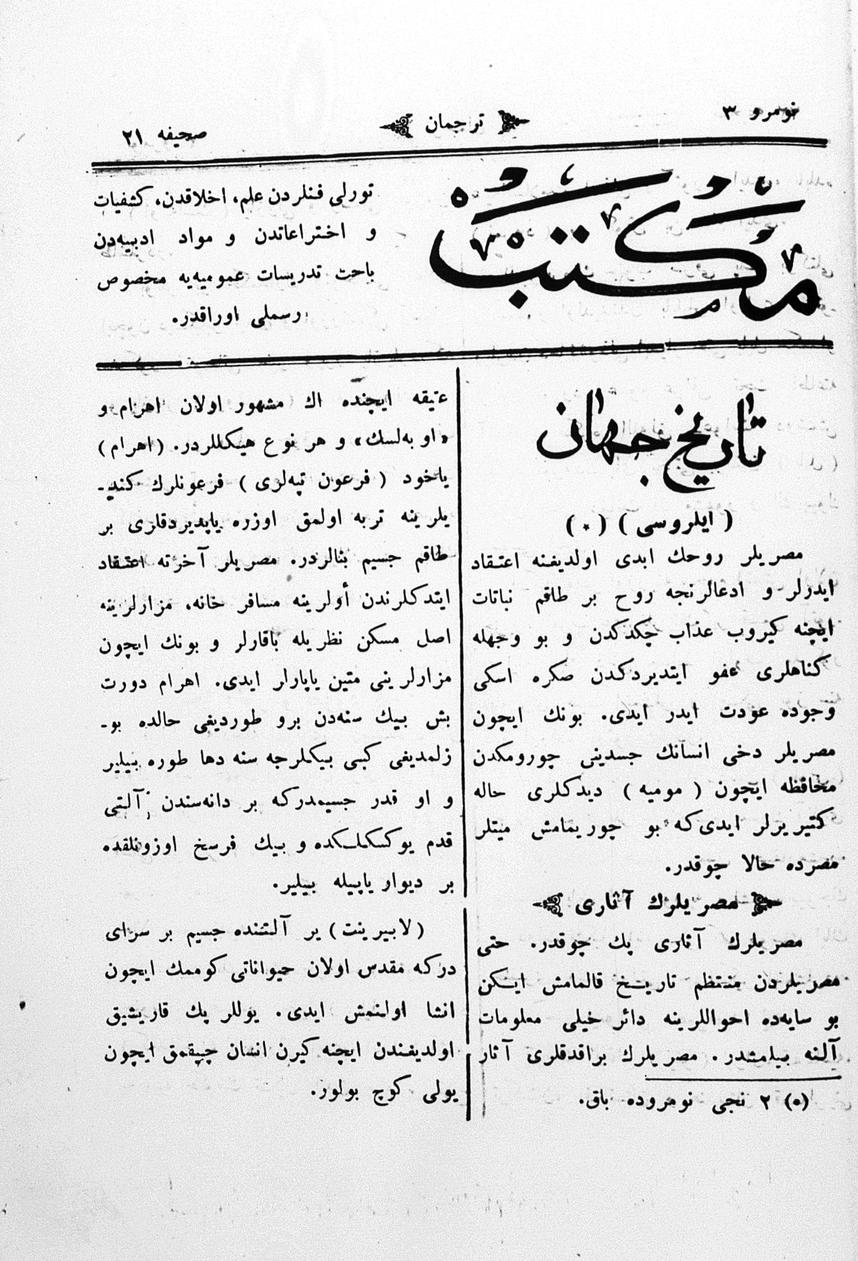 نومرو ٣
ترجمان
صحیفه ٢١
مكتب
تورلی فنلردن علم، اخلاقدن، كشفیات
و اختراعاتدن و مواد ادبیه‌دن
باحث تدریسات عمومیه‌یه مخصوص
رسملی اوراقدر.
تاریخ جهان
( ایلروسی ) (٠)
مصریلر روحك ابدی اولدیغنه اعتقاد
ایدرلر و ادعالرنجه روح بر طاقم نباتات
ایچنه كیروب عذاب چكدكدن و بو وجهله
كناهلری عفو ایتدیردكدن صكره اسكی
وجوده عودت ایدر ایدی. بونك ایچون
مصریلر دخی انسانك جسدینی چورومكدن
محافظه ایچون ( مومیه ) دیدكلری حاله
كتیریرلر ایدی‌كه بو چوریمامش میتلر
مصرده حالا چوقدر.
مصریلرك آثاری
مصریلرك آثاری پك چوقدر. حتی
مصریلردن منتظم تاریخ قالمامش ایكن
بو سایه‌ده احواللرینه دائر خیلی معلومات
آلنه بیلمشدر. مصریلرك براقدقلری آثار
(٥) ٢ نجی نومروده باق.
عتیقه ایچنده اك مشهور اولان اهرام و
«او به‌لسك» و هر نوع هیكللردر. (اهرام)
یاخود ( فرعون تپه‌لری ) فرعونلرك كند-
یلرینه تربه اولمق اوزره یاپدیردقلری بر
طاقم جسیم بنالردر. مصریلر آخرته اعتقاد
ایتدكلرندن أولرینه مسافر خانه، مزارلرینه
اصل مسكن نظریله باقارلر و بونك ایچون
مزارلرینی متین یاپارلر ایدی. اهرام دورت
بش بیك سنه‌دن برو طوردیغی حالده بو-
زلمدیغی كبی بیكلرجه سنه دها طوره بیلیر
و او قدر جسیمدركه بر دانه‌سندن آلتی
قدم یوكسكلكده و بیك فرسخ اوزونلقده
بر دیوار یاپیله بیلیر.
(لابیرینت) یر آلتنده جسیم بر سرای
دركه مقدس اولان حیواناتی كوممك ایچون
انشا اولنمش ایدی. یوللر پك قاریشیق
اولدیغندن ایچنه كیرن انسان چیقمق ایچون
یولی كوچ بولور.